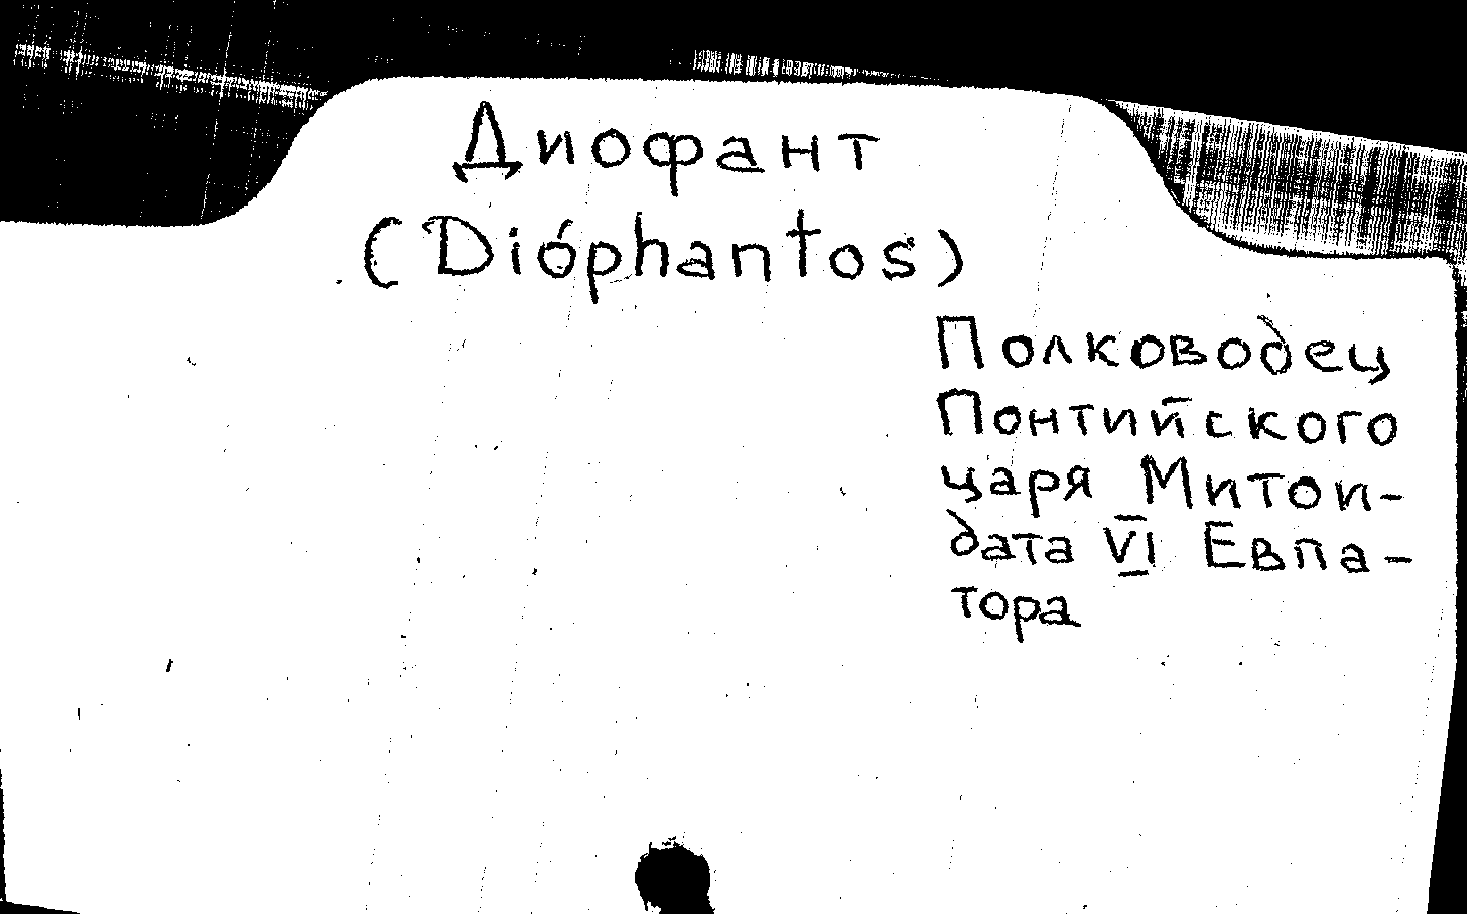 Диофант
(Dióphantos)
Полководец
Понтийского
царя Митои-
дата VI Евпа-
тора